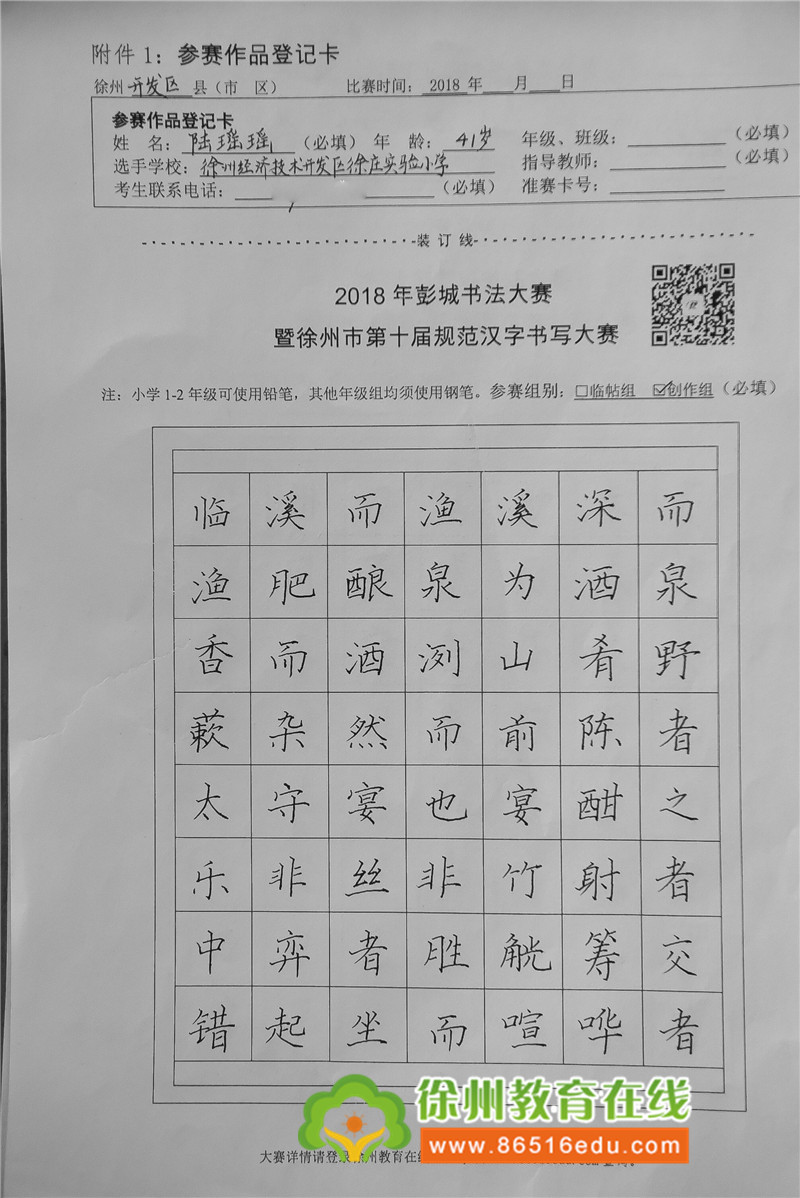 附件 1：参赛作品登记卡
徐州 开发区 县（市 区） 比赛时间： 2018 年 月 日
参赛作品登记卡
姓 名： 陆瑶瑶 （必填） 年 龄： 41岁 年级、班级： （必填）
选手学校： 徐州经济技术开发区徐庄实验小学 指导教师： （必填）
考生联系电话： （必填） 准赛卡号：
装 订 线
2018 年彭城书法大赛
暨徐州市第十届规范汉字书写大赛
注：小学 1-2 年级可使用铅笔，其他年级组均须使用钢笔。参赛组别：□临帖组 ☑创作组（必填）
临溪而渔溪深而
渔肥酿泉为酒泉
香而酒洌山肴野
蔌杂然而前陈者
太守宴也宴酣之
乐非丝非竹射者
中弈者胜觥筹交
错起坐而喧哗者
徐州教育在线
www.86516edu.com
大赛详情请登录徐州教育在线